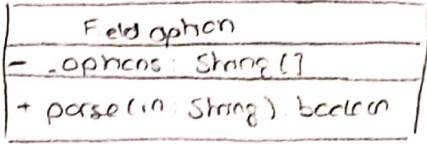 Field option
- .options: String[]
+ parse(in: String): boolean